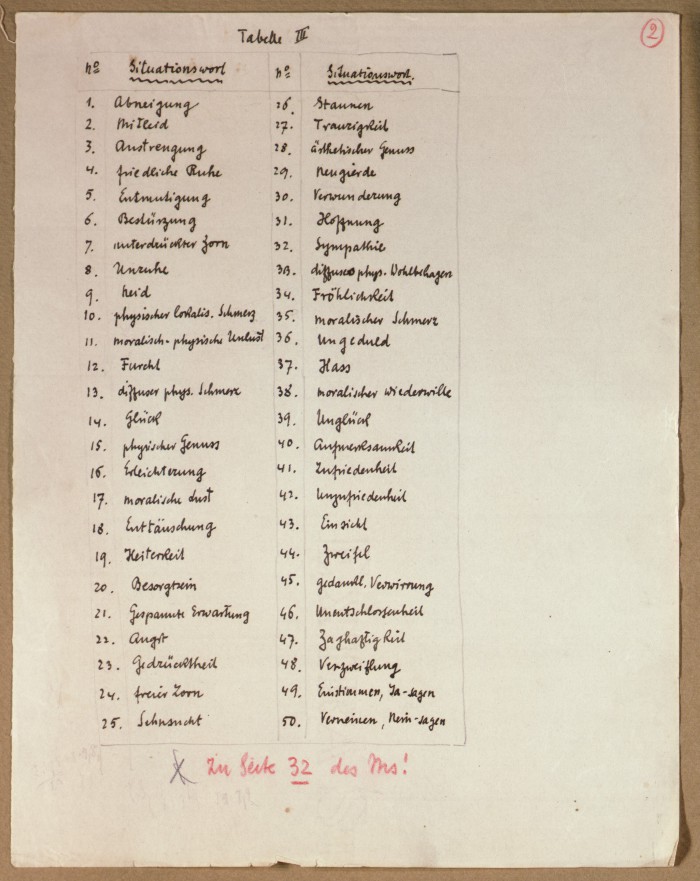 Tabelle III
2
No Situationswort No Situationswort.
1. Abneigung 26. Staunen
2. Mitleid 27. Traurigkeit
3. Anstrengung 28. ästhetischer Genuss
4. friedliche Ruhe 29. Neugierde
5. Entmutigung 30. Verwunderung
6. Bestürzung 31. Hoffnung
7. unterdrückter Zorn 32. Sympathie
8. Unruhe 33. diffuses phys. Wohlbehagen
9. Neid 34. Fröhlichkeit
10. physischer lokalis. Schmerz 35. moralischer Schmerz
11. moralisch-physische Unlust 36. Ungeduld
12. Furcht 37. Hass
13. diffuser phys. Schmerz 38. moralischer Wiederwille
14. Glück 39. Unglück
15. physischer Genuss 40. Aufmerksamkeit
16. Erleichterung 41. Zufriedenheit
17. moralische Lust 42. Unzufriedenheit
18. Enttäuschung 43. Einsicht
19. Heiterkeit 44. Zweifel
20. Besorgtsein 45. gedankl. Verwirrung
21. Gespannte Erwartung 46. Unentschlossenheit
22. Angst 47. Zaghaftigkeit
23. Gedrücktheit 48. Verzweiflung
24. freier Zorn 49. Einstimmen, Ja-sagen
25. Sehnsucht 50. Verneinen, Nein-sagen
Zu Seite 32 des Ms!